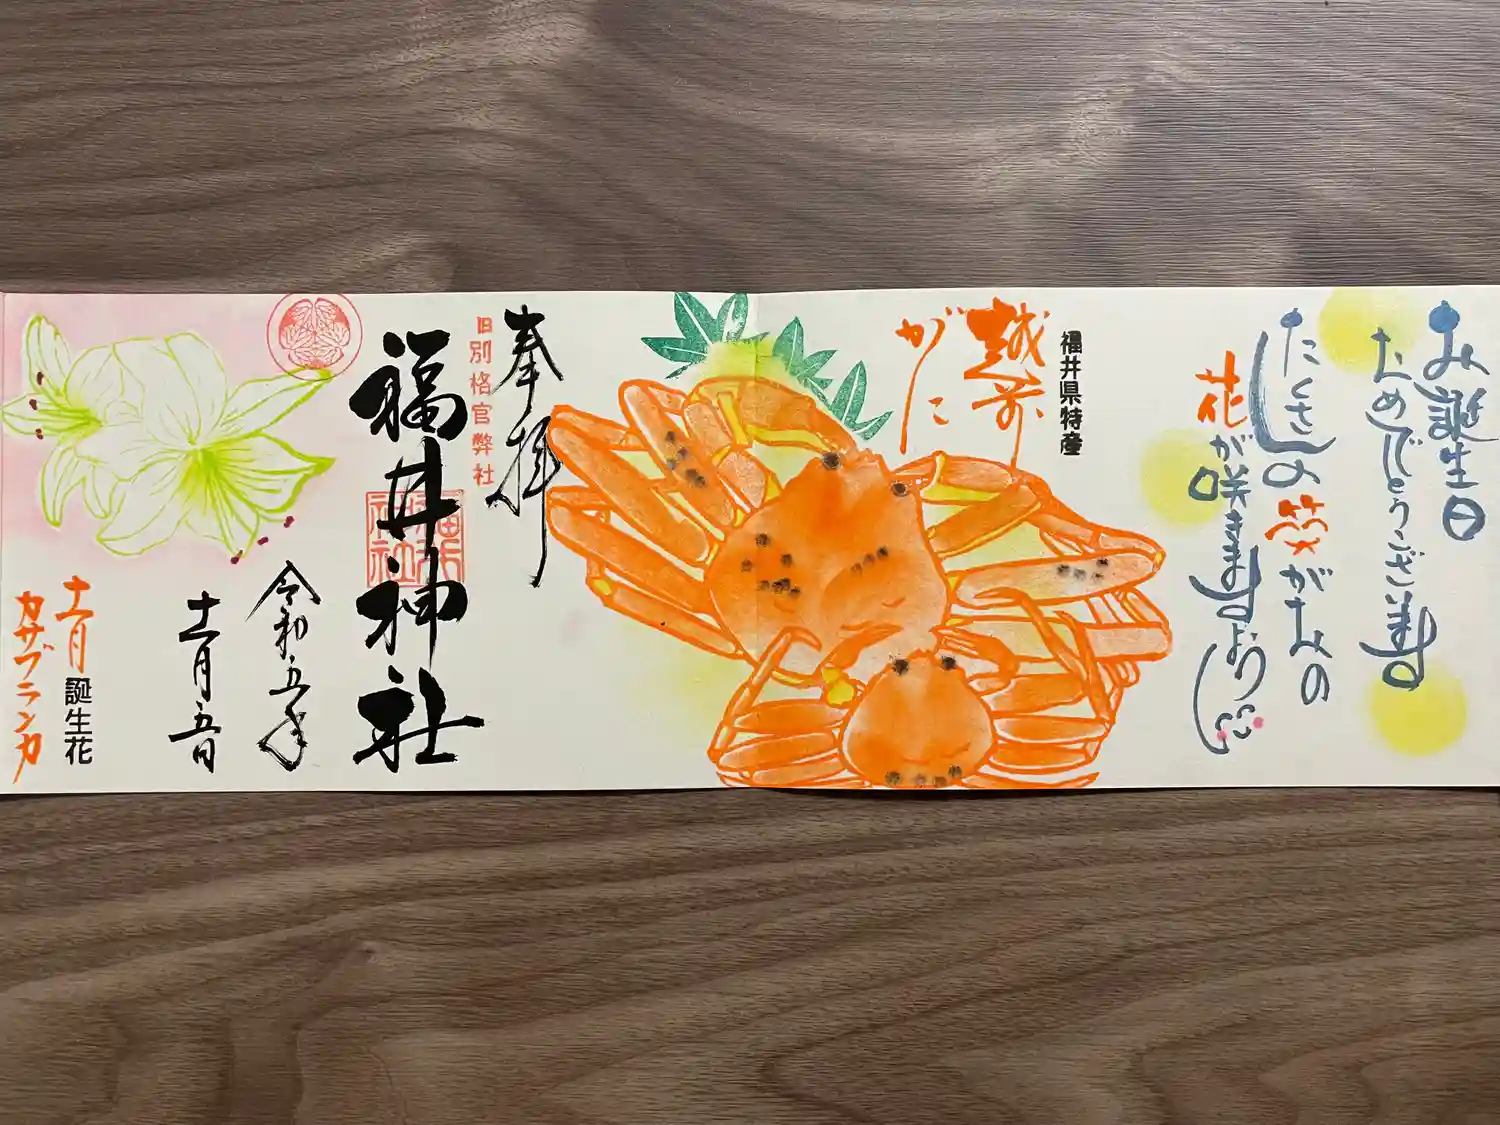 お誕生日
おめでとうございます
たくさんの笑がおの
花が咲きますように
福井県特産
越前
がに
奉拝
旧別格官幣社
福井神社
福井
神社
令和五年
十一月五日
十一月誕生花
カサブランカ